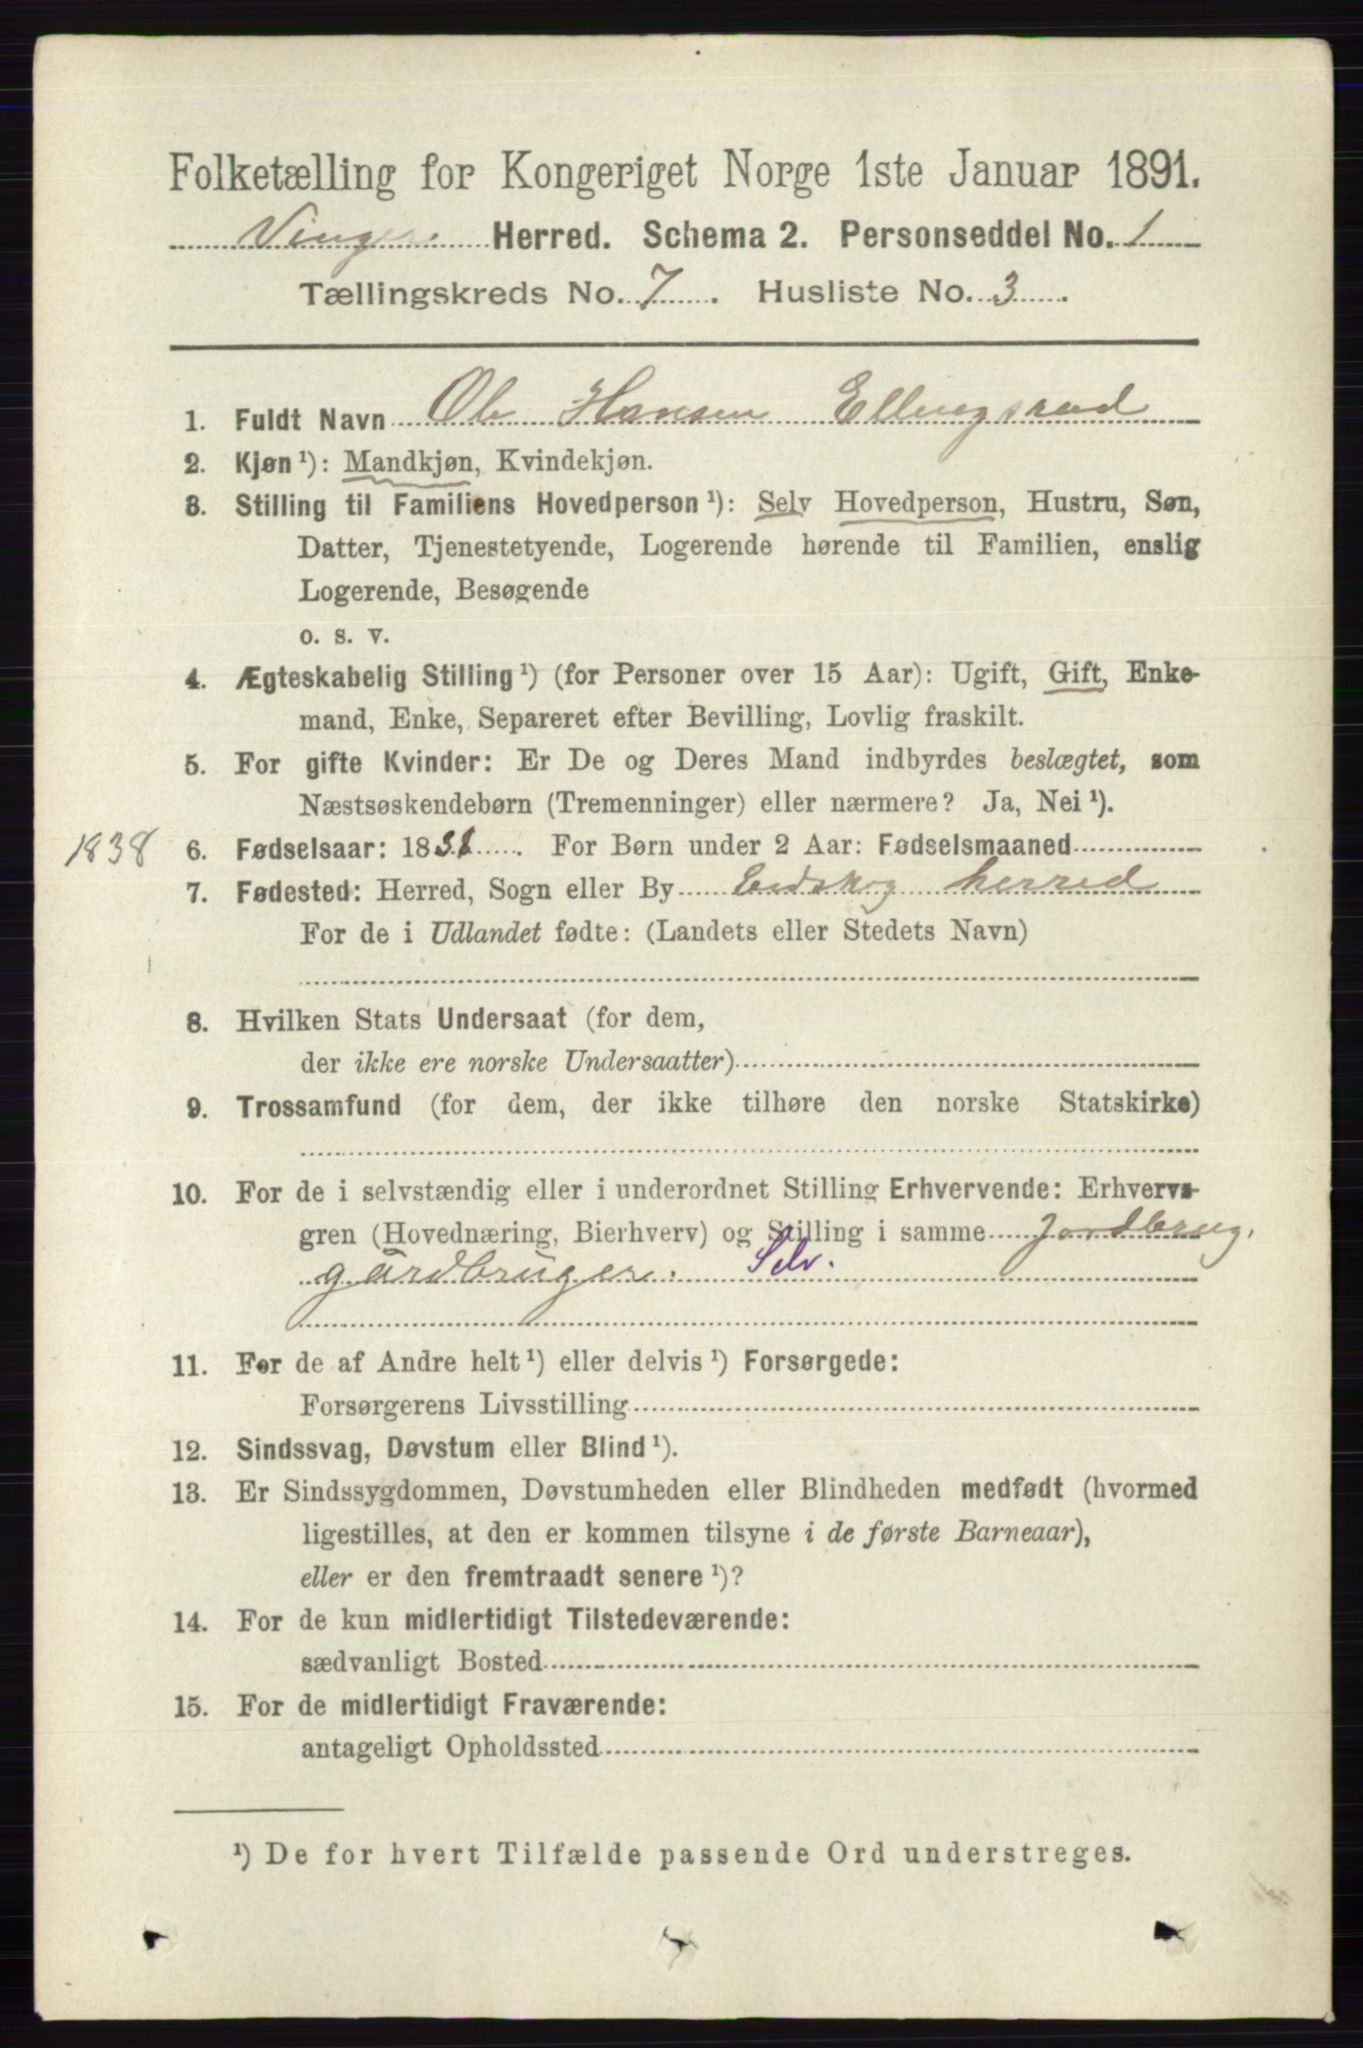 Folketælling for Kongeriget Norge 1ste Januar 1891.
Vinger Herred. Schema 2. Personseddel No. 1
Tællingskreds No. 7. Husliste No. 3.
1. Fuldt Navn Ole Hansen Ellingsrud
2. Kjøn ¹): Mandkjøn, Kvindekjøn.
3. Stilling til Familiens Hovedperson ¹): Selv Hovedperson, Hustru, Søn,
Datter, Tjenestetyende, Logerende hørende til Familien, enslig
Logerende, Besøgende
o. s. v.
4. Ægteskabelig Stilling ¹) (for Personer over 15 Aar): Ugift, Gift, Enke-
mand, Enke, Separeret efter Bevilling, Lovlig fraskilt.
5. For gifte Kvinder: Er De og Deres Mand indbyrdes beslægtet, som
Næstsøskendebørn (Tremenninger) eller nærmere? Ja, Nei ¹).
1838 6. Fødselsaar: 1838. For Børn under 2 Aar: Fødselsmaaned
7. Fødested: Herred, Sogn eller By Eidskog herred
For de i Udlandet fødte: (Landets eller Stedets Navn)
8. Hvilken Stats Undersaat (for dem,
der ikke ere norske Undersaatter)
9. Trossamfund (for dem, der ikke tilhøre den norske Statskirke)
10. For de i selvstændig eller i underordnet Stilling Erhvervende: Erhvervs-
gren (Hovednæring, Bierhverv) og Stilling i samme Jordbrug,
gårdbruger. Selv.
11. For de af Andre helt ¹) eller delvis ¹) Forsørgede:
Forsørgerens Livsstilling
12. Sindssvag, Døvstum eller Blind ¹).
13. Er Sindssygdommen, Døvstumheden eller Blindheden medfødt (hvormed
ligestilles, at den er kommen tilsyne i de første Barneaar),
eller er den fremtraadt senere ¹)?
14. For de kun midlertidigt Tilstedeværende:
sædvanligt Bosted
15. For de midlertidigt Fraværende:
antageligt Opholdssted
¹) De for hvert Tilfælde passende Ord understreges.